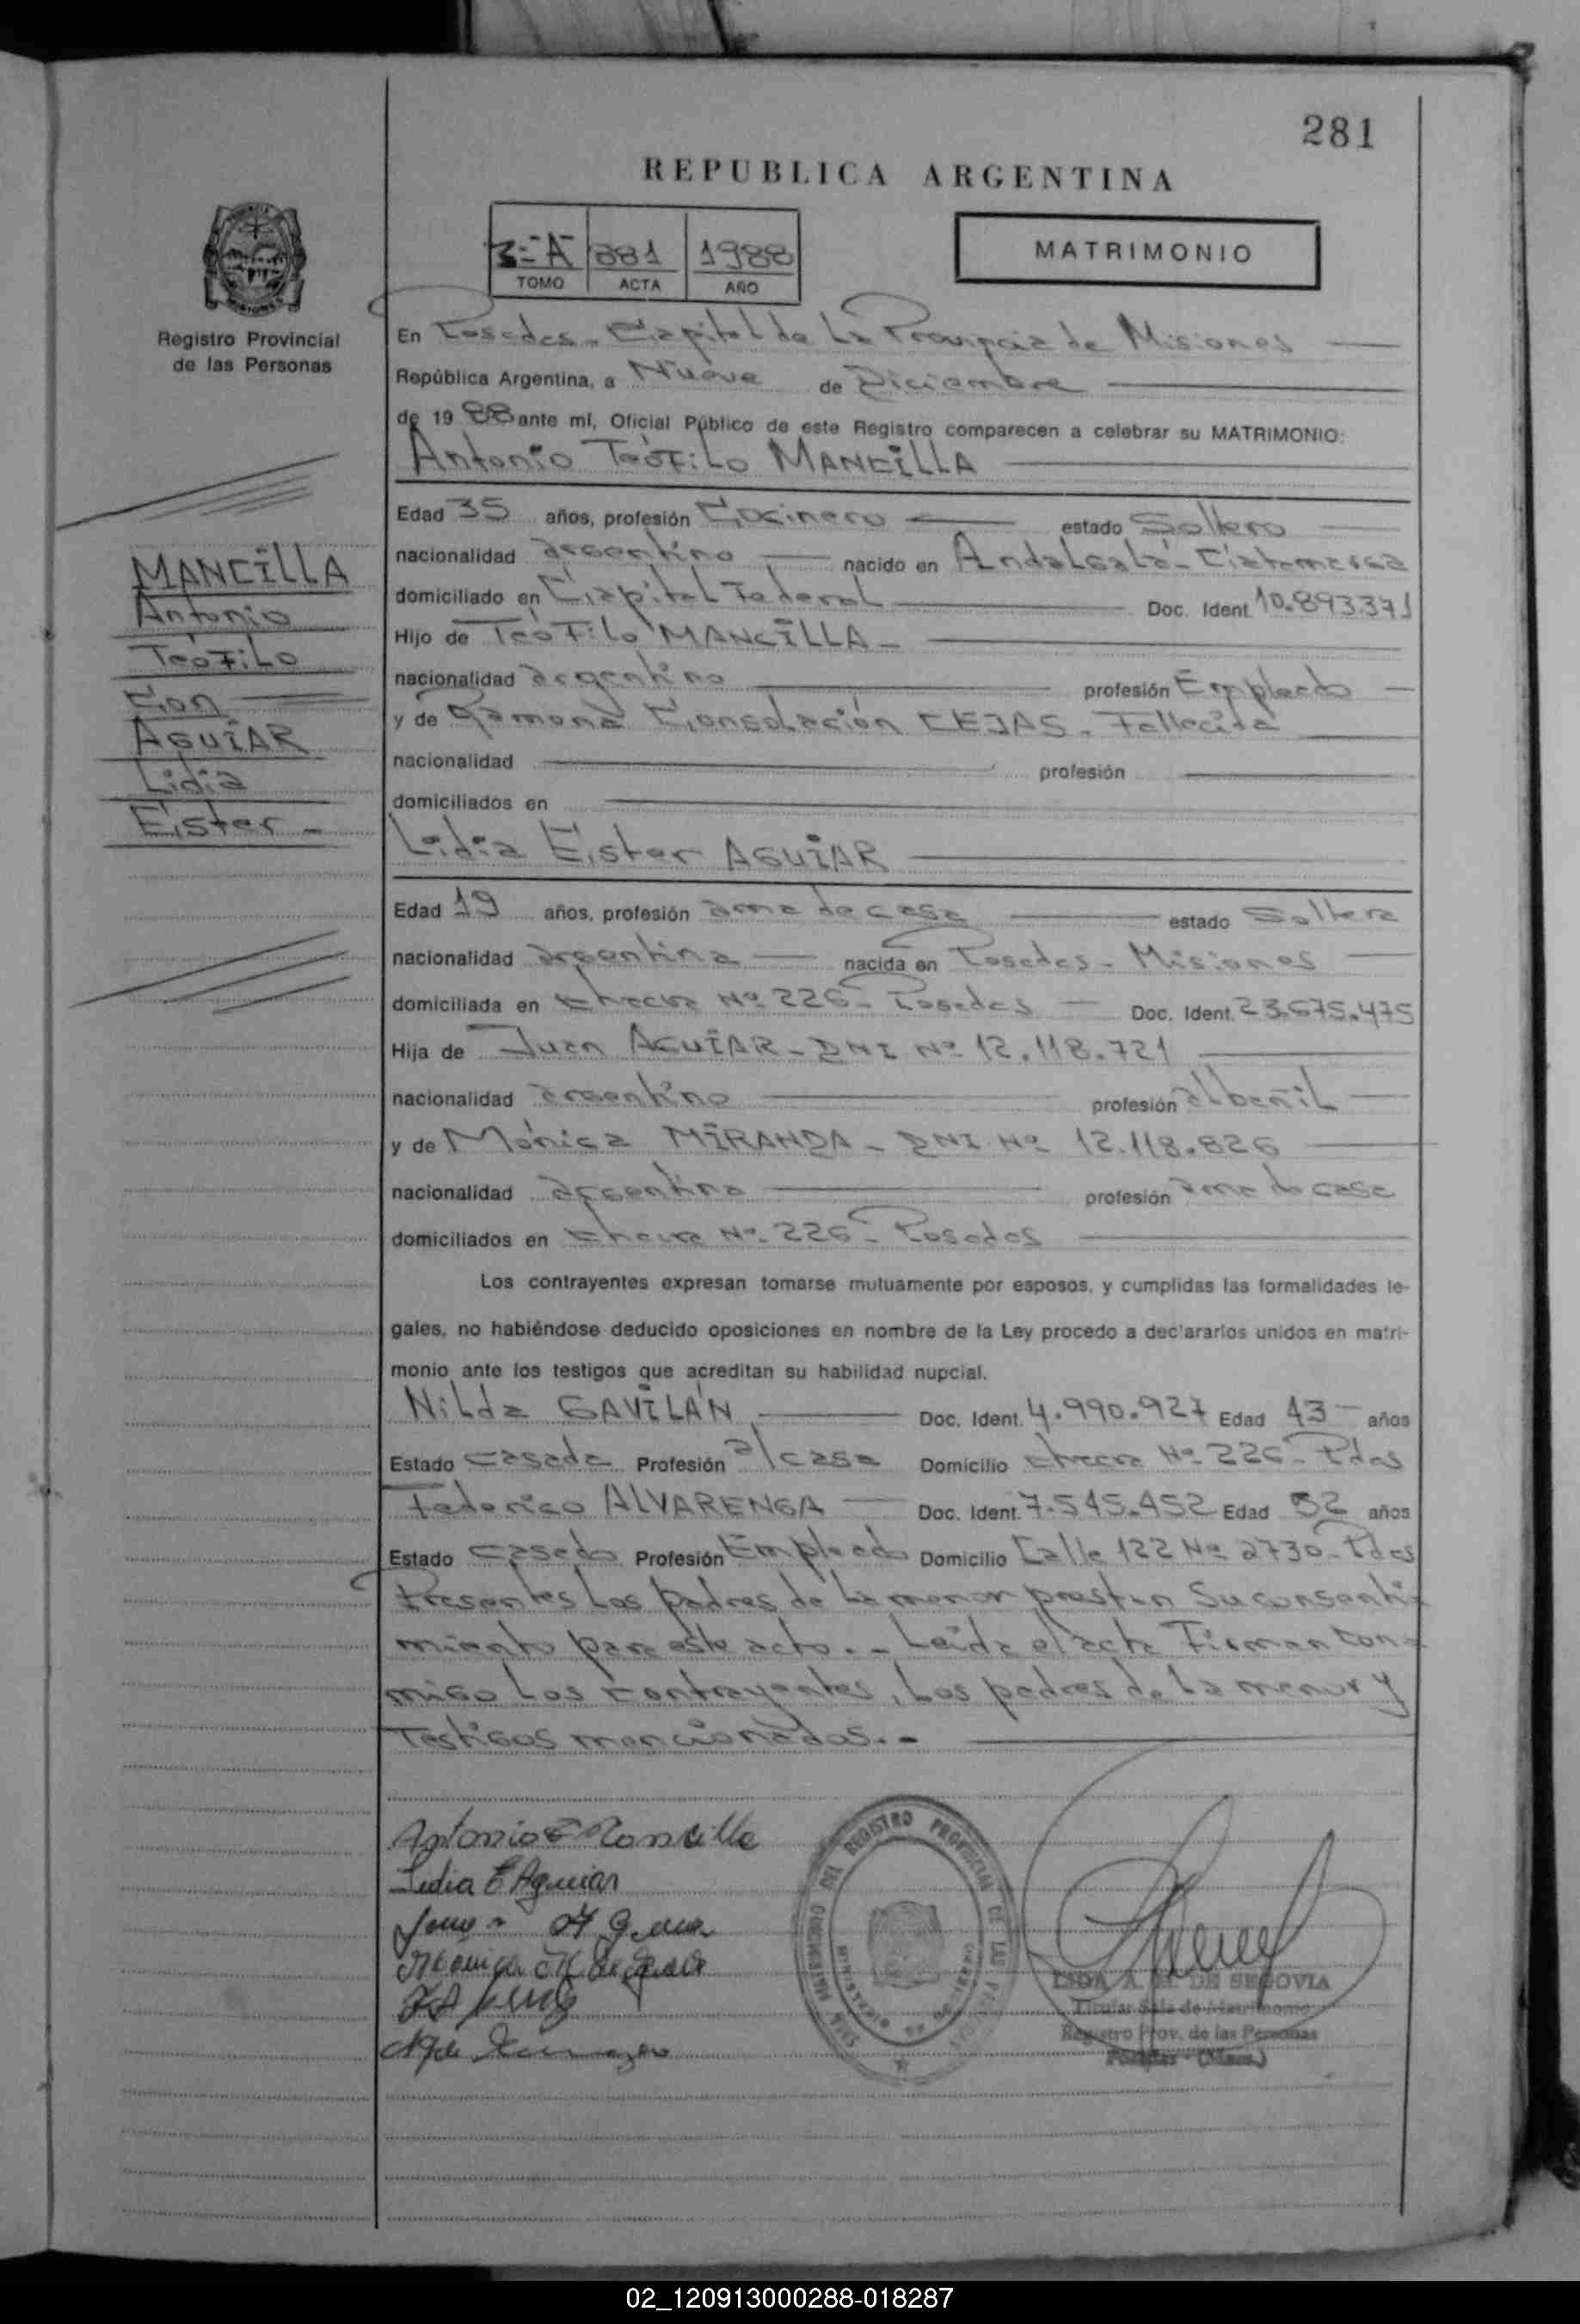 281
REPUBLICA ARGENTINA
3=A 881 1988
TOMO ACTA AÑO
MATRIMONIO
Registro Provincial
de las Personas
En Posadas - Capital de La Provincia de Misiones
República Argentina, a Nueve de Diciembre
de 19 88 ante mí, Oficial Público de este Registro comparecen a celebrar su MATRIMONIO:
Antonio Teófilo MANCILLA
Edad 35 años, profesión Cocinero estado Soltero
nacionalidad argentino nacido en Andalgalá - Catamarca
domiciliado en Capital Federal Doc. Ident. 10.893.371
Hijo de Teófilo MANCILLA -
nacionalidad argentino profesión Empleado
y de Ramona Consolación CEJAS - Fallecida
nacionalidad profesión
domiciliados en
MANCILLA
Antonio
Teófilo
Con
AGUIAR
Lidia
Ester -
Lidia Ester AGUIAR
Edad 19 años, profesión ama de casa estado Soltera
nacionalidad argentina nacida en Posadas - Misiones
domiciliada en chacra Nº 226 - Posadas Doc. Ident. 23.675.475
Hija de Juan AGUIAR - DNI Nº 12.118.721
nacionalidad argentino profesión albañil
y de Mónica MIRANDA - DNI Nº 12.118.826
nacionalidad argentina profesión ama de casa
domiciliados en chacra Nº 226 - Posadas
Los contrayentes expresan tomarse mutuamente por esposos, y cumplidas las formalidades le-
gales, no habiéndose deducido oposiciones en nombre de la Ley procedo a declararlos unidos en matri-
monio ante los testigos que acreditan su habilidad nupcial.
Nilda GAVILÁN Doc. Ident. 4.990.927 Edad 43 años
Estado casada Profesión a/casa Domicilio chacra Nº 226 - Pdas
Federico ALVARENGA Doc. Ident. 7.545.452 Edad 52 años
Estado casado Profesión Empleado Domicilio Calle 122 Nº 2730 - Pdas
Presentes Los padres de la menor prestan Su consenti-
miento para este acto. - Leída el acta Firman con-
migo Los contrayentes, Los padres de la menor y
Testigos mencionados. -
Antonio T Mancilla
Lidia E Aguiar
DEL REGISTRO PROVINCIAL DE LAS PERSONAS
MINISTERIO DE GOBIERNO
LIDA A. M. DE SEGOVIA
Titular Sala de Matrimonio
Registro Prov. de las Personas
Posadas - (Mnes.)
02_120913000288-018287